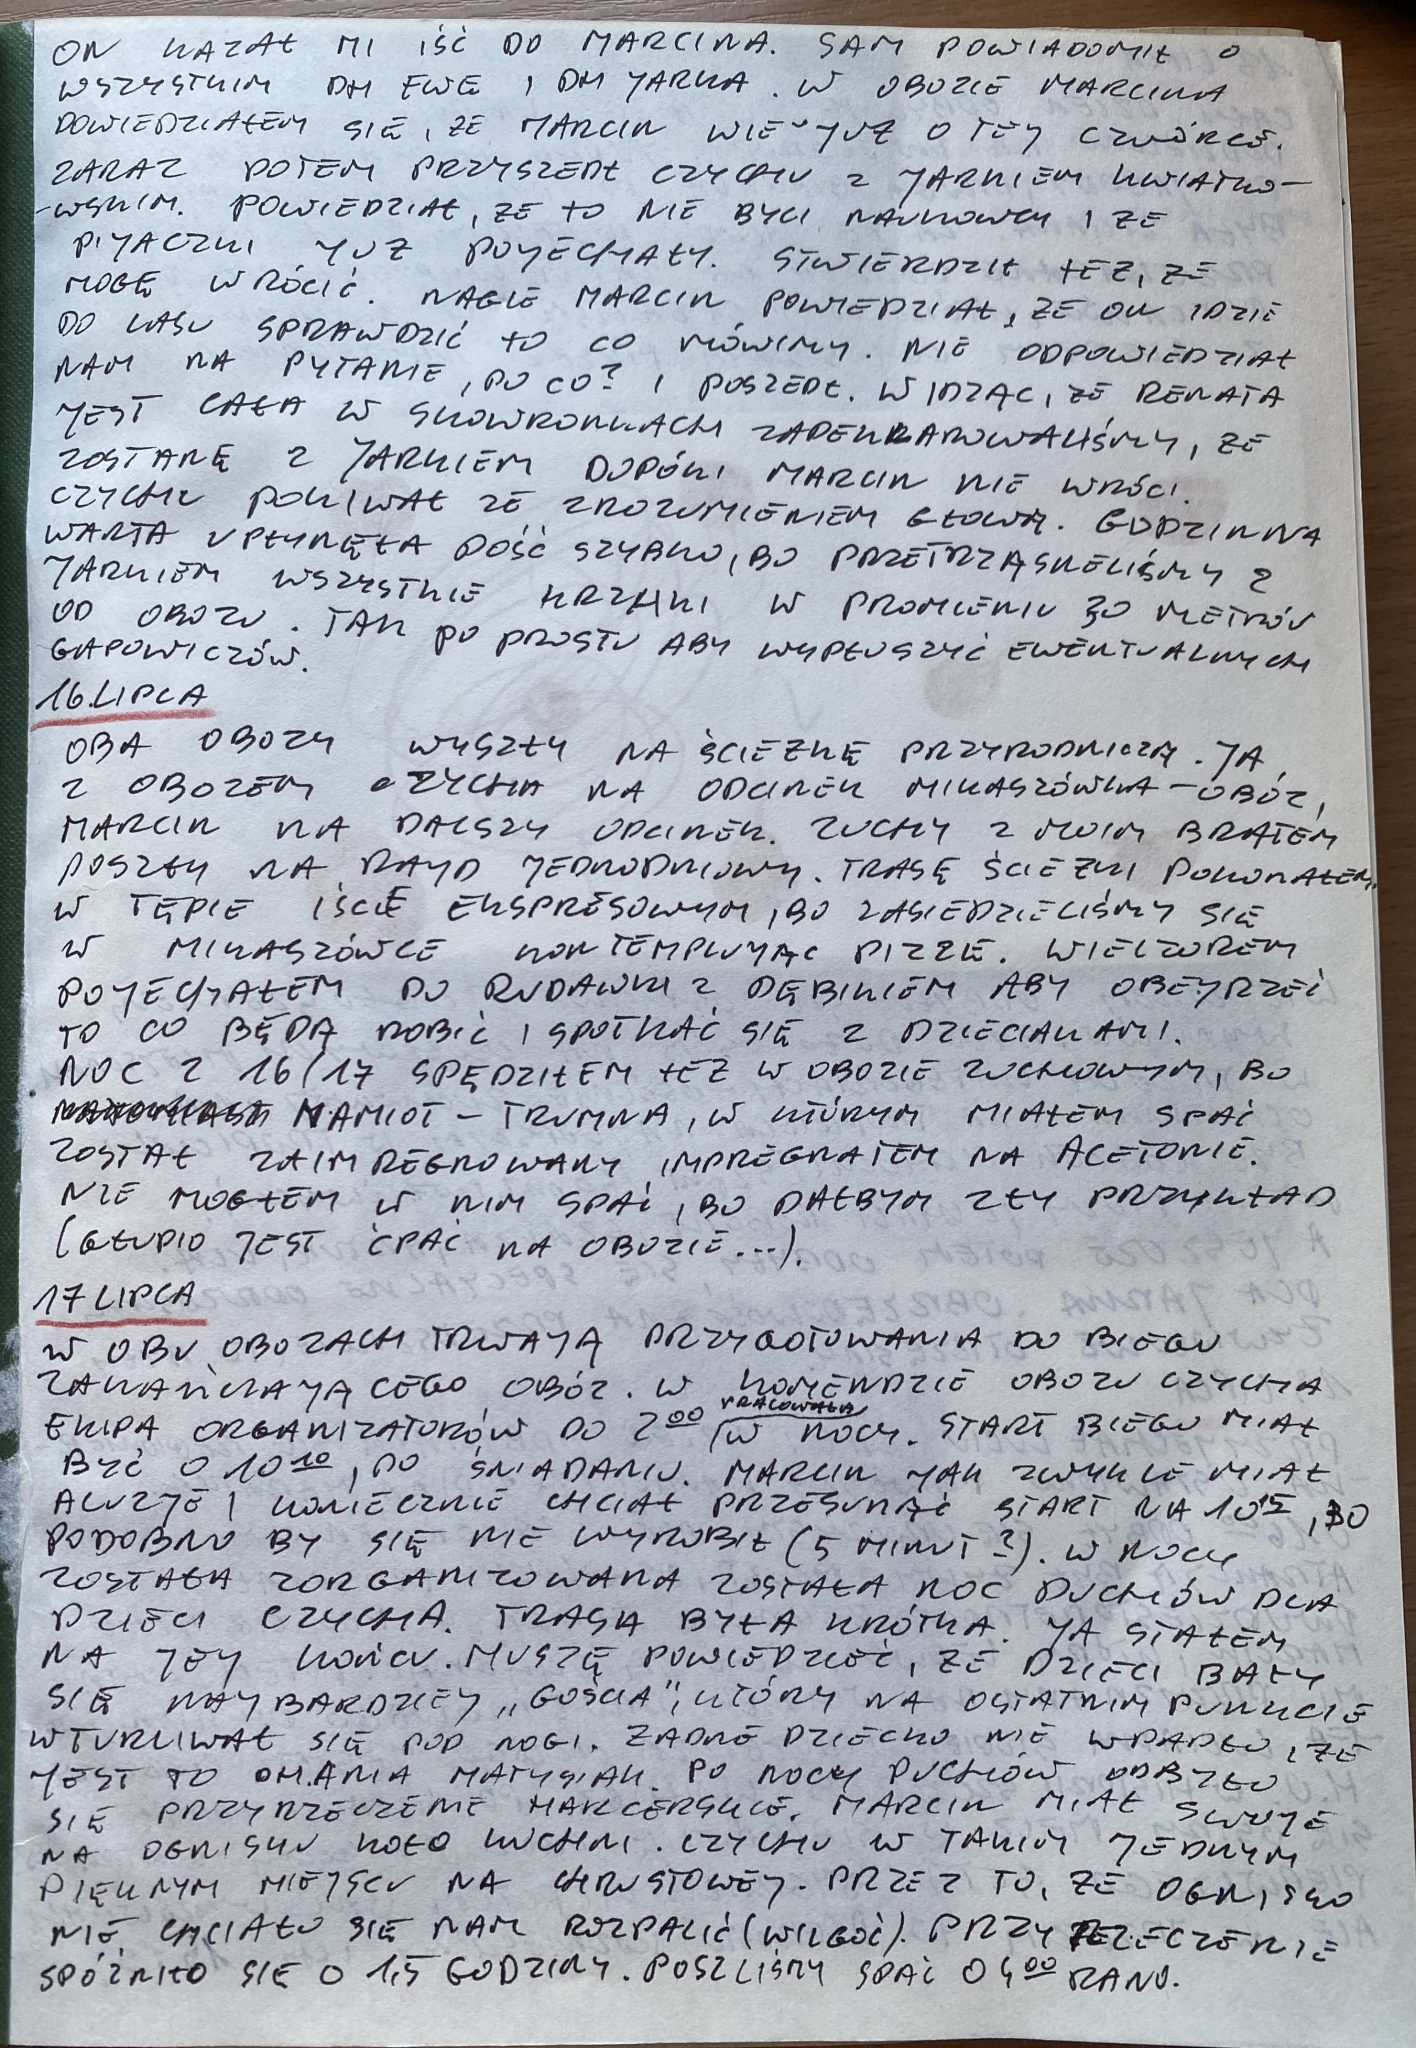 ON KAZAŁ MI IŚĆ DO MARCINA. SAM POWIADOMIŁ O
WSZYSTKIM DH EWĘ I DH JARKA. W OBOZIE MARCINA
DOWIEDZIAŁEM SIĘ, ŻE MARCIN WIE JUŻ O TEJ CZWÓRCE.
ZARAZ POTEM PRZYSZEDŁ CZYCHU Z JARKIEM KWIATKO-
-WSKIM. POWIEDZIAŁ, ŻE TO NIE BYLI NAUKOWCY I ŻE
PIJACZKI JUŻ POJECHAŁY. STWIERDZIŁ TEŻ, ŻE
MOGĘ WRÓCIĆ. NAGLE MARCIN POWIEDZIAŁ, ŻE ON IDZIE
DO LASU SPRAWDZIĆ TO CO MÓWIMY. NIE ODPOWIEDZIAŁ
NAM NA PYTANIE, PO CO? I POSZEDŁ. WIDZĄC, ŻE RENATA
JEST CAŁA W SKOWRONKACH ZADEKLAROWALIŚMY, ŻE
ZOSTANĘ Z JARKIEM DOPÓKI MARCIN NIE WRÓCI.
CZYCHU POKIWAŁ ZE ZROZUMIENIEM GŁOWĄ. GODZINNA
WARTA UPŁYNĘŁA DOŚĆ SZYBKO, BO PRZETRZĄSNELIŚMY Z
JARKIEM WSZYSTKIE KRZAKI W PROMIENIU 30 METRÓW
OD OBOZU. TAK PO PROSTU ABY WYPŁOSZYĆ EWENTUALNYCH
GAPOWICZÓW.
16.LIPCA
OBA OBOZY WYSZŁY NA ŚCIEŻKĘ PRZYRODNICZĄ. JA,
Z OBOZEM CZYCHA NA ODCINEK MIKASZÓWKA - OBÓZ,
MARCIN NA DALSZY ODCINEK. ZUCHY Z MOIM BRATEM
POSZŁY NA RAJD JEDNODNIOWY. TRASĘ ŚCIEŻKI POKONAŁEM
W TĘPIE IŚCIE EKSPRESOWYM, BO ZASIEDZIELIŚMY SIĘ
W MIKASZÓWCE KONTEMPLUJĄC PIZZE. WIECZOREM
POJECHAŁEM DO RUDAWKI Z DĘBIKIEM ABY OBEJRZEĆ
TO CO BĘDĄ ROBIĆ I SPOTKAĆ SIĘ Z DZIECIAKAMI.
NOC Z 16/17 SPĘDZIŁEM TEŻ W OBOZIE ZUCHOWYM, BO
NAMIOT - TRUMNA, W KTÓRYM MIAŁEM SPAĆ
ZOSTAŁ ZAIMPREGNOWANY IMPREGNATEM NA ACETONIE.
NIE MOGŁEM W NIM SPAĆ, BO DAŁBYM ZŁY PRZYKŁAD
(GŁUPIO JEST ĆPAĆ NA OBOZIE...).
17 LIPCA
W OBU OBOZACH TRWAJĄ PRZYGOTOWANIA DO BIEGU
ZAKAŃCZAJĄCEGO OBÓZ. W KOMENDZIE OBOZU CZYCHA
EKIPA ORGANIZATORÓW DO 2⁰⁰ PRACOWAŁA W NOCY. START BIEGU MIAŁ
BYĆ O 10¹⁰, PO ŚNIADANIU. MARCIN JAK ZWYKLE MIAŁ
ALUZJE I KONIECZNIE CHCIAŁ PRZESUNĄĆ START NA 10¹⁵, BO
PODOBNO BY SIĘ NIE WYROBIŁ (5 MINUT?). W NOCY
ZOSTAŁA ZORGANIZOWANA ZOSTAŁA NOC DUCHÓW DLA
DZIECI CZYCHA. TRASA BYŁA KRÓTKA. JA STAŁEM
NA JEJ KOŃCU. MUSZĘ POWIEDZIEĆ, ŻE DZIECI BAŁY
SIĘ NAJBARDZIEJ „GOŚCIA", KTÓRY NA OSTATNIM PUNKCIE
WTURLIWAŁ SIĘ POD NOGI. ŻADNE DZIECKO NIE WPADŁO, ŻE
JEST TO DH.ANIA MATYSIAK. PO NOCY DUCHÓW ODBYŁO
SIĘ PRZYRZECZENIE HARCERSKIE. MARCIN MIAŁ SWOJE
NA OGNISKU KOŁO KUCHNI. CZYCHU W TAKIM JEDNYM
PIĘKNYM MIEJSCU NA CHRUSTOWEJ. PRZEZ TO, ŻE OGNISKO
NIE CHCIAŁO SIĘ NAM ROZPALIĆ (WILGOĆ). PRZYRZECZENIE
SPÓŹNIŁO SIĘ O 1,5 GODZINY. POSZLIŚMY SPAĆ O 4⁰⁰ RANO.